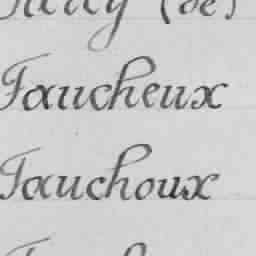 (de)
Faucheux
Fauchoux